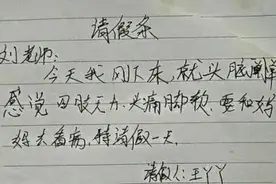 请假条
刘老师:
今天我刚下床,就头脑
感说四肢无力,头痛脚软,要和妈
妈去看病,特请假一天.
请假人:王丫丫